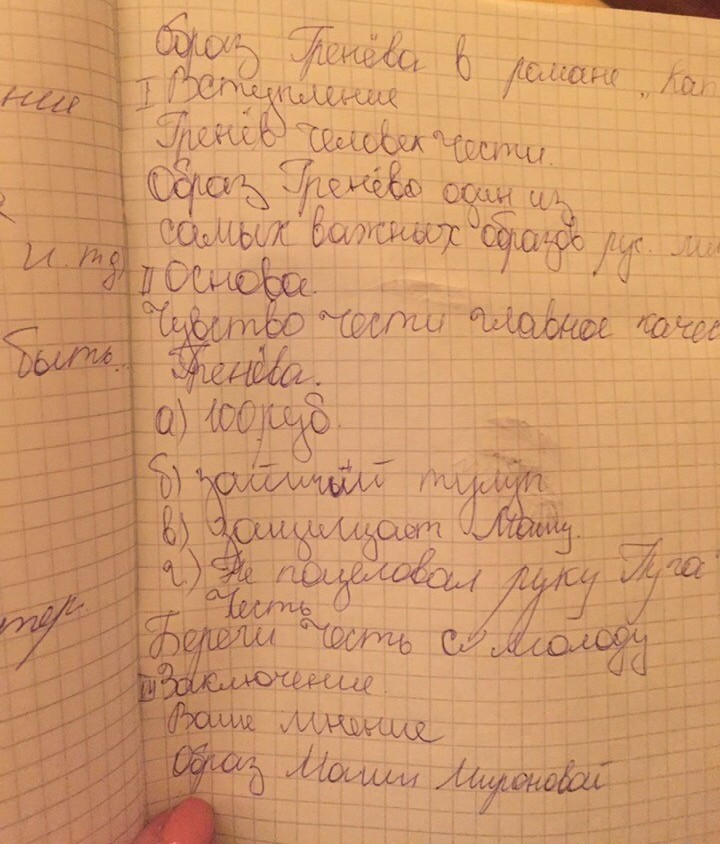 Образ Гренёва в романе „Кап
I Вступление
Гренёв человек чести.
Образ Гренёва один из
самых важных образов рус. ли
II Основа.
Чувство чести главное качес
Гренёва.
а) 100 руб.
б) заячий тулуп
в) защищает Машу.
г) Не поцеловал руку Пуга
Честь
Береги честь с молоду
III Заключение
Ваше мнение
Образ Маши Мироновой
ние
и. тд)
быть..
тер.